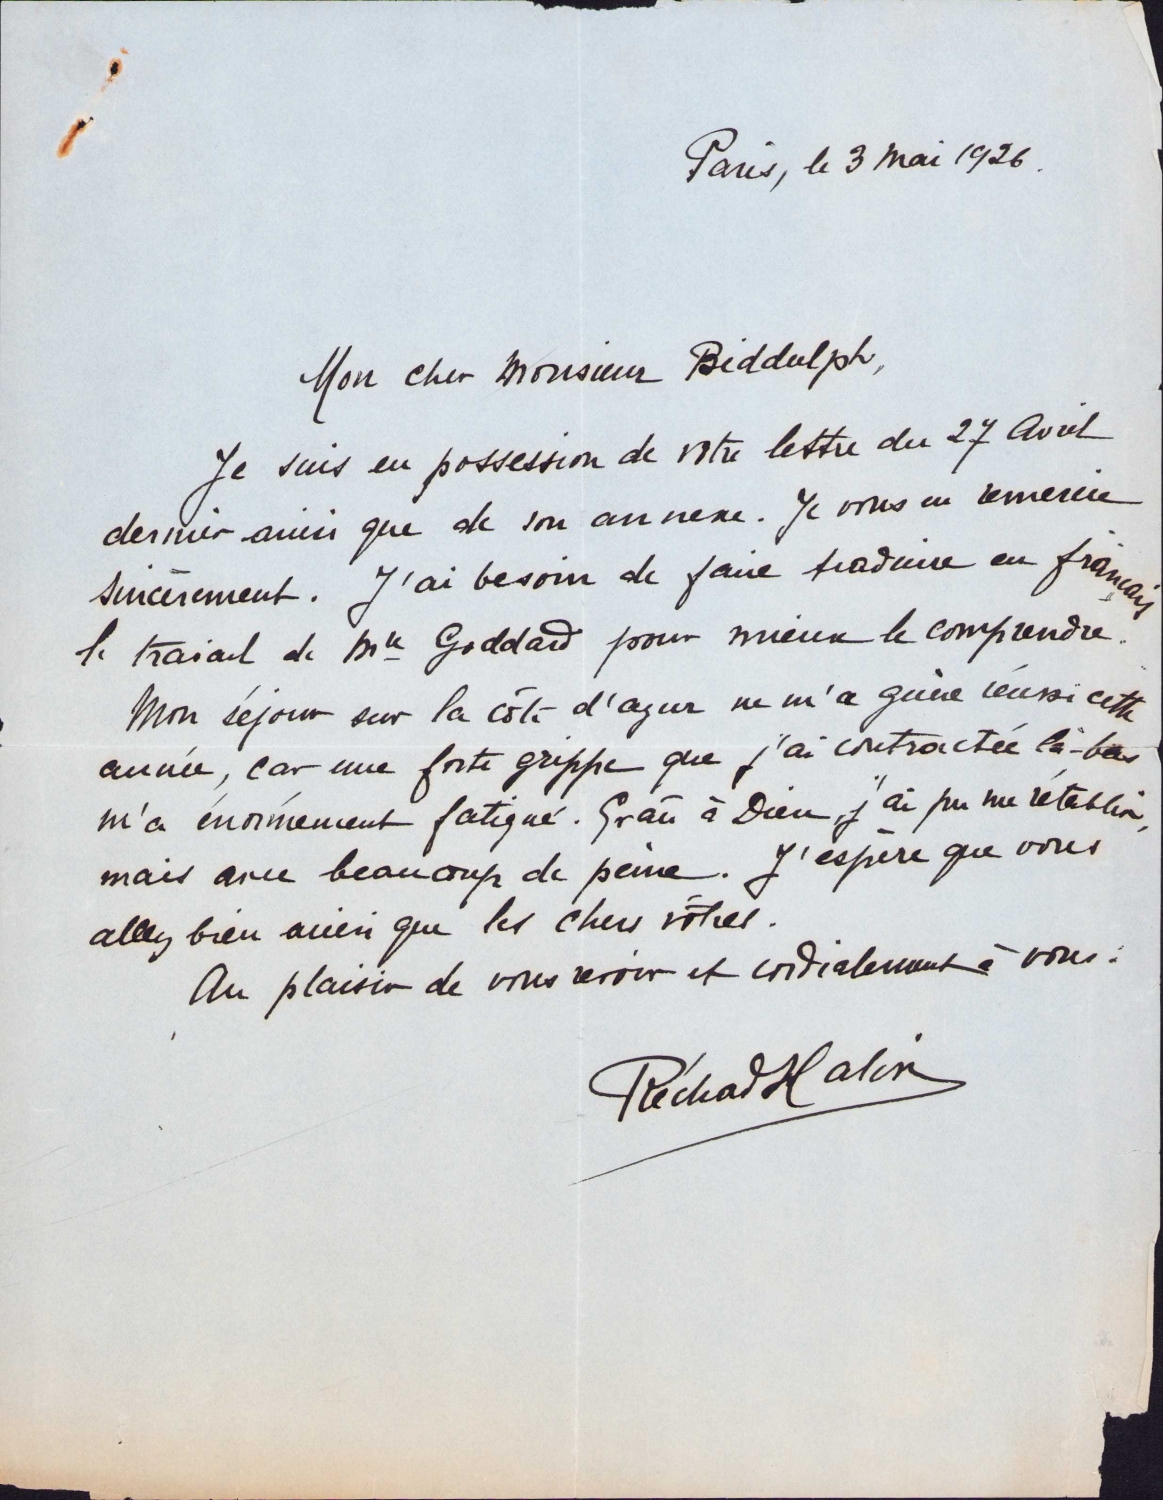 Paris, le 3 Mai 1926.
Mon cher Monsieur Biddulph,
Je suis en possession de votre lettre du 27 Avril
dernier ainsi que de son annexe. Je vous en remercie
sincèrement. J'ai besoin de faire traduire en français
le travail de Mr Goddard pour mieux le comprendre.
Mon séjour sur la côte d'azur ne m'a guère réussi cette
année, car une forte grippe que j'ai contractée là-bas
m'a énormément fatigué. Grâce à Dieu, j'ai pu me rétablir,
mais avec beaucoup de peine. J'espère que vous
allez bien ainsi que les chers vôtres.
Au plaisir de vous revoir et cordialement à vous.
Réchad Halis